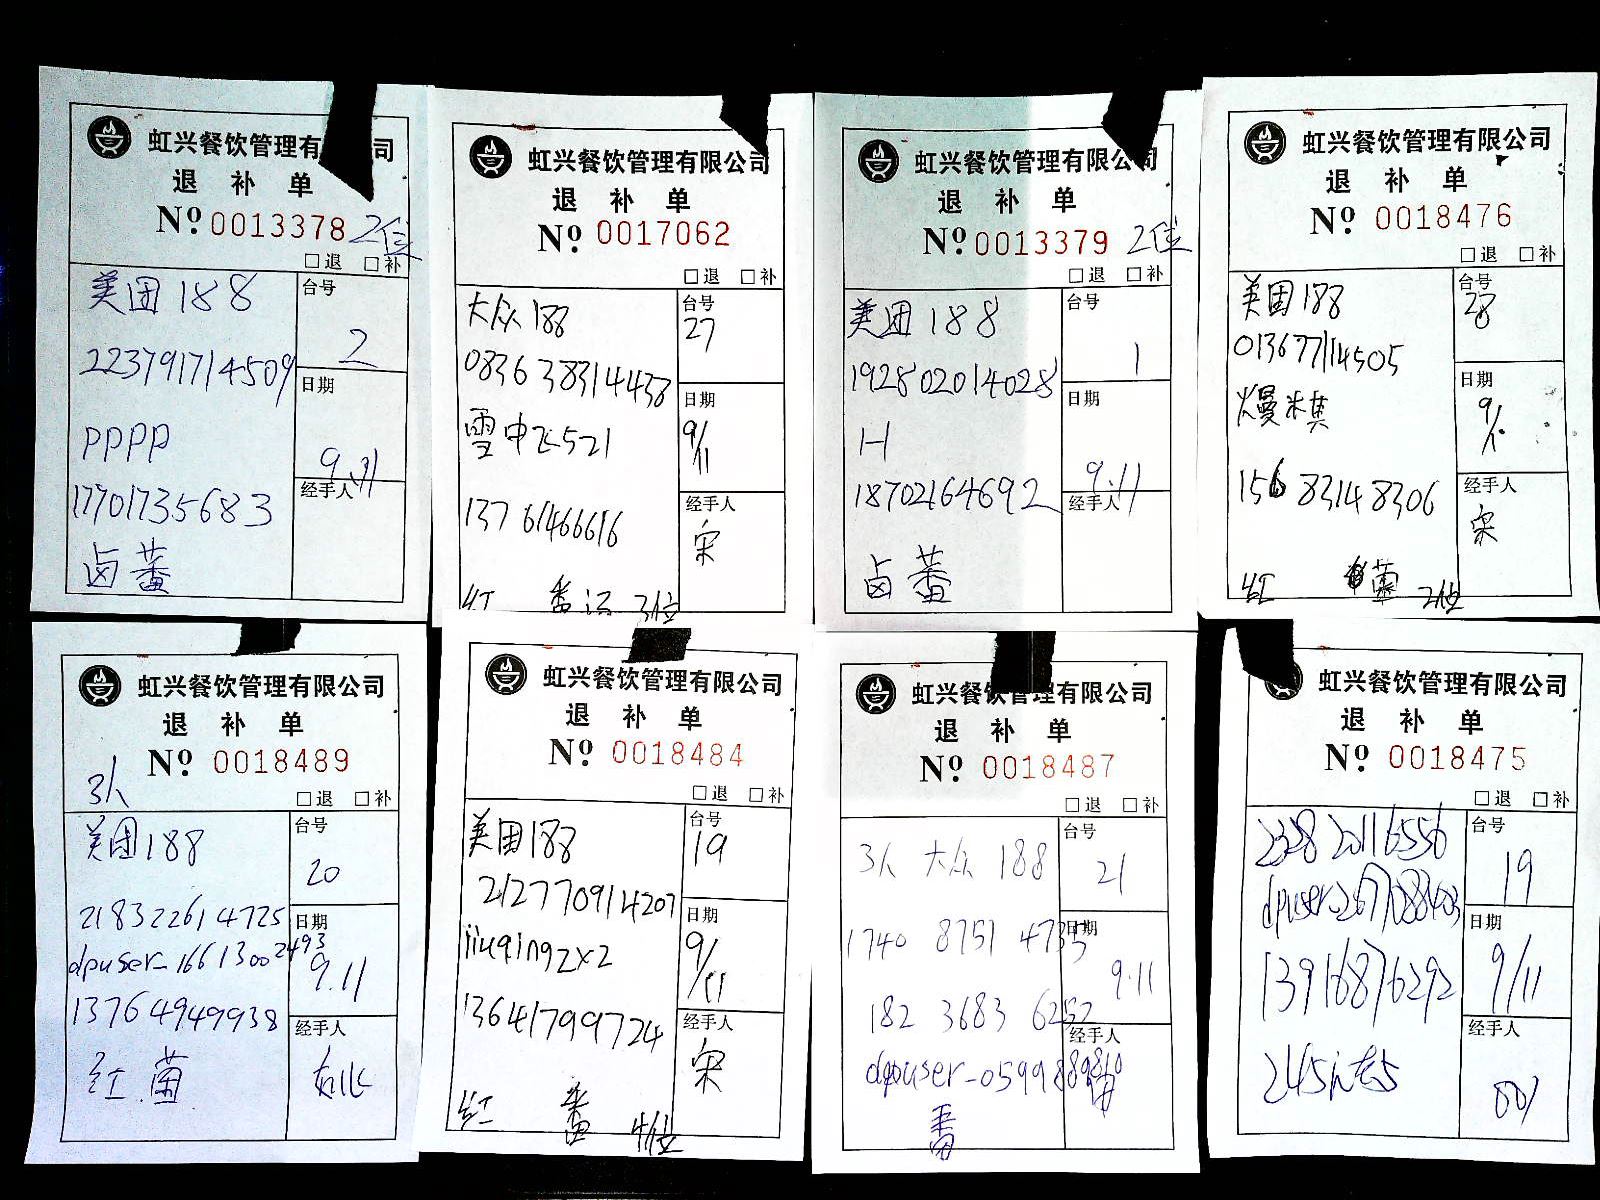 虹兴餐饮管理有 司
退 补 单
Nº 0013378 2位
□退 □补
美团188
台号
2
223791714509
日期
pppp
9.11
17701735683
经手人
卤 蕃
虹兴餐饮管理有限公司
退 补 单
Nº 0017062
□退 □补
大众188
台号
27
083638314438
日期
9/11
雪中飞521
经手人
宋
13761466616
红 番 3位
虹兴餐饮管理有限公司
退 补 单
Nº 0013379 2位
□退 □补
美团188
台号
1
192802014028
日期
H
9.11
18702164692
经手人
卤 蕃
虹兴餐饮管理有限公司
退 补 单
Nº 0018476
□退 □补
美团188
台号
28
013677114505
日期
经手人
宋
15683148306
红 2位
虹兴餐饮管理有限公司
退 补 单
Nº 0018489
3人
□退 □补
美团188
台号
20
218322614725
日期
dpuser_16613002493
9.11
13764949938
经手人
红 菌
虹兴餐饮管理有限公司
退 补 单
Nº 0018484
□退 □补
美团188
台号
19
212770914207
日期
9/11
jiuqingzx2
13641799724
经手人
宋
红 番 4位
虹兴餐饮管理有限公司
退 补 单
Nº 0018487
□退 □补
3人 大众 188
台号
21
1740 8751 4735
日期
9.11
182 3683 6252
经手人
番
虹兴餐饮管理有限公司
退 补 单
Nº 0018475
□退 □补
2328 20116556
台号
19
日期
9/11
13916876292
经手人
001